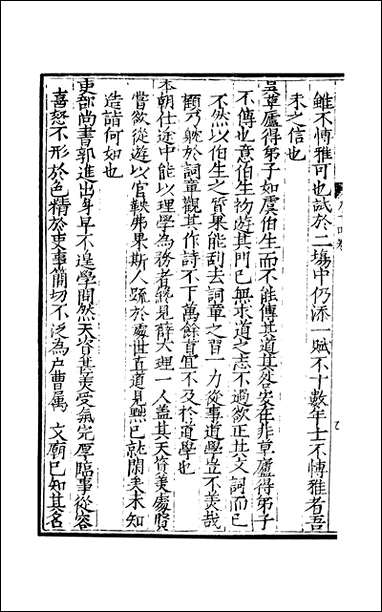 雖不愽雅可也試於二塲中仍添一賦不十數年士不愽雅者吾
未之信也
吳草廬得弟子如虞伯生而不能傳其道其從安在非草廬得弟子
不傳也意伯生初遊其門已無求道之志不過欲正其文詞而已
不然以伯生之質果能刮去詞章之習一力從事道學豈不美哉
顧乃躭於詞章觀其作詩不丁萬餘首宜不及於道學也
本朝仕途中能以理學為務者終見薛大理一人盖其天資美處賢
嘗欲從遊以官鞅弗果斯人疏於處世直道見黜已就閑矣未知
造詣何如也
吏部尚書郭進出身早不遑學問然天資甚美受氣完厚臨事從容
喜怒不形於色精於吏事簡切不泛為戶曹屬 文廟已知其名